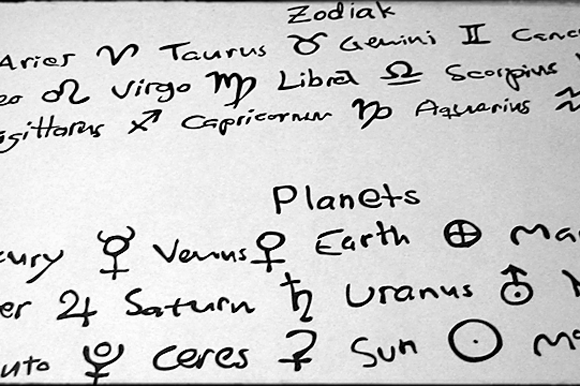 Zodiak
Aries ♈ Taurus ♉ Gemini ♊ Canc
eo ♌ Virgo ♍ Libra ♎ Scorpius
gittarus ♐ Capricornum ♑ Aquarius ♒
Planets
cury ☿ Venus ♀ Earth ⊕ Ma
er ♃ Saturn ♄ Uranus ⛢
uto ♇ Ceres ⚳ Sun ☉ M